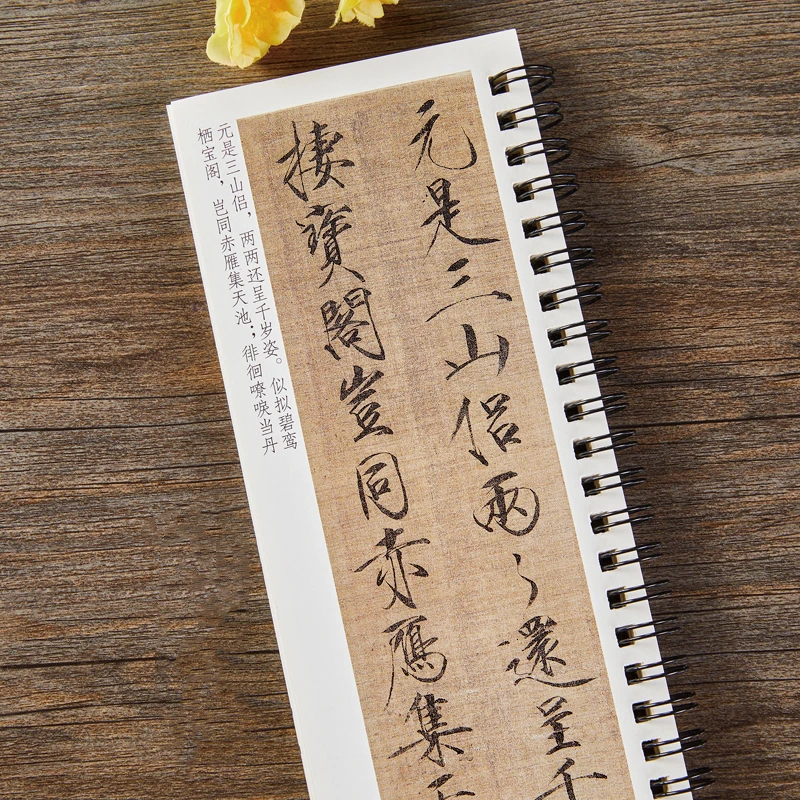 元是三山侶兩〻還呈千
棲寶閣豈同赤鴈集
元是三山侣，两两还呈千岁姿。似拟碧鸾
栖宝阁，岂同赤雁集天池；徘徊嘹唳当丹